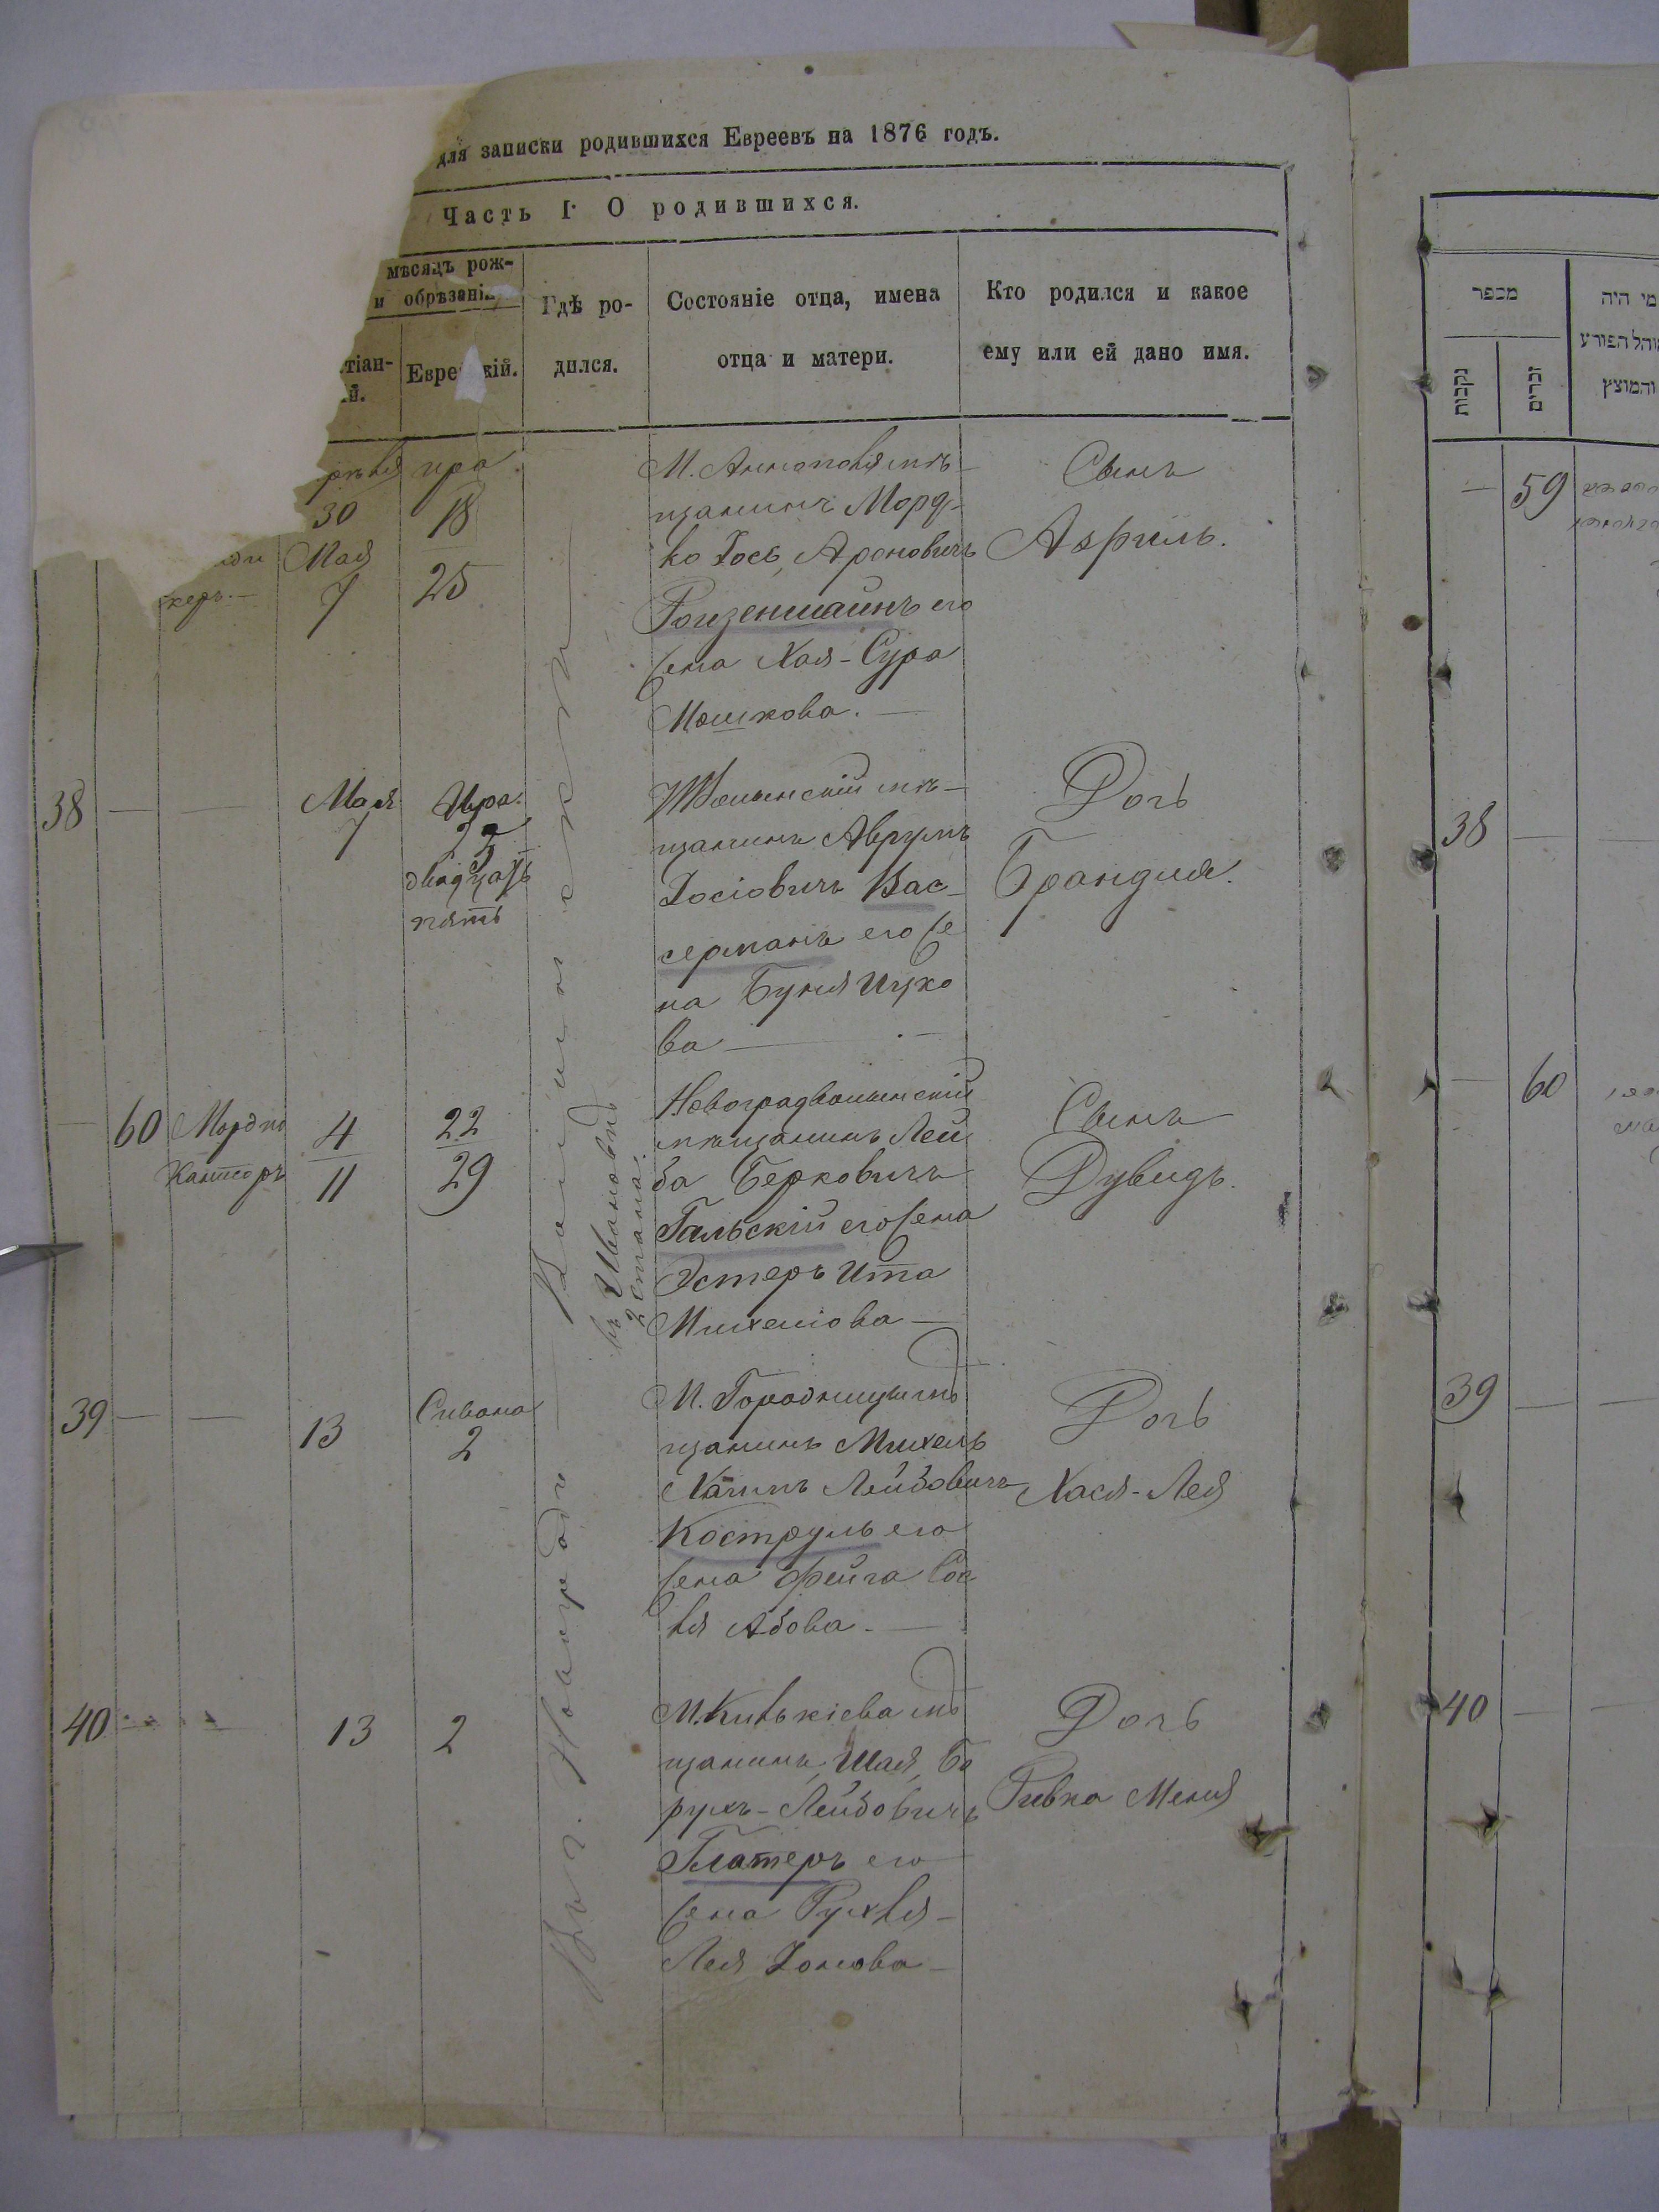 для записки родившихся Евреевъ на 1876 годъ.
Часть I. О родившихся.
мѣсяцъ рож-
и обрѣзанія
тіан-
й.
Еврейскій.
Гдѣ ро-
дился.
Состояніе отца, имена
отца и матери.
Кто родился и какое
ему или ей дано имя.
ира
30
18
Мая
7
25
керъ.
М. Аннополя мѣ-
щанинъ Морд-
ко Іось Ароновичъ
Ройзенштайнъ его
жена Хая-Сура
Мошкова.
Сынъ
Азриль.
38
Мая
7
Ира
двадцать
пять
Волынскій мѣ-
щанинъ Аврумъ
Іосіовичъ Вас-
серманъ его же
на Буня Ицко
ва
Дочь
Брандля.
60
Мордко
Канторъ
4
11
22
29
Новоградволынскій
мѣщанинъ Лей
ба Берковичъ
Гальскій его жена
Эстеръ Ита
Михеліова
Сынъ
Дувидъ.
39
13
Сивана
2
М. Городницы мѣ
щанинъ Михель
Хаимъ Лейбовичъ
Коструль его
жена Фейга Сос
ля Абова.
Дочь
Хася-Лея
40
13
2
М. Килькіева мѣ
щанинъ Шая Бо
рухъ-Лейбовичъ
Глатеръ его
жена Рухля-
Лея Іонова
Дочь
Ривка Меня
въ Ивановкѣ
2 стана.
Въ г. Новоградѣ
Волынскѣ
מספר
נקבות
זכרים
מי היה
והמוצץ
59
38
60
39
40